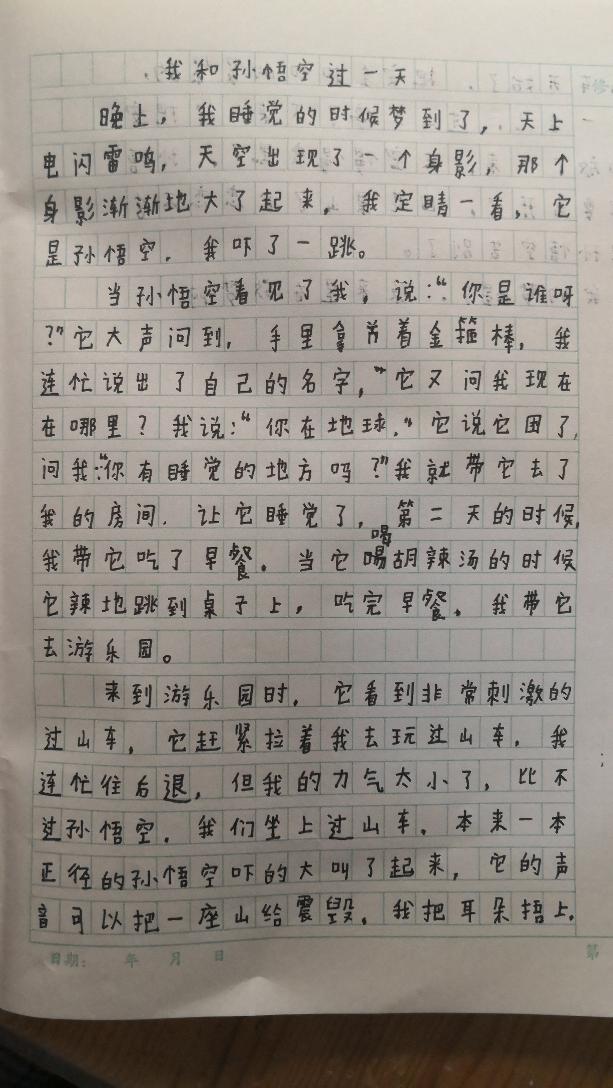 我和孙悟空过一天
晚上，我睡觉的时候梦到了，天上
电闪雷鸣，天空出现了一个身影，那个
身影渐渐地大了起来，我定睛一看，它
是孙悟空，我吓了一跳。
当孙悟空看见了我，说：“你是谁呀
？”它大声问到，手里拿着金箍棒，我
连忙说出了自己的名字，”它又问我现在
在哪里？我说：“你在地球，”它说它困了，
问我：“你有睡觉的地方吗？”我就带它去了
我的房间，让它睡觉了，第二天的时候，
我带它吃了早餐，当它喝胡辣汤的时候
它辣地跳到桌子上，吃完早餐，我带它
去游乐园。
来到游乐园时，它看到非常刺激的
过山车，它赶紧拉着我去玩过山车，我
连忙往后退，但我的力气太小了，比不
过孙悟空，我们坐上过山车，本来一本
正径的孙悟空吓的大叫了起来，它的声
音可以把一座山给震毁，我把耳朵捂上，
日期： 年 月 日
第